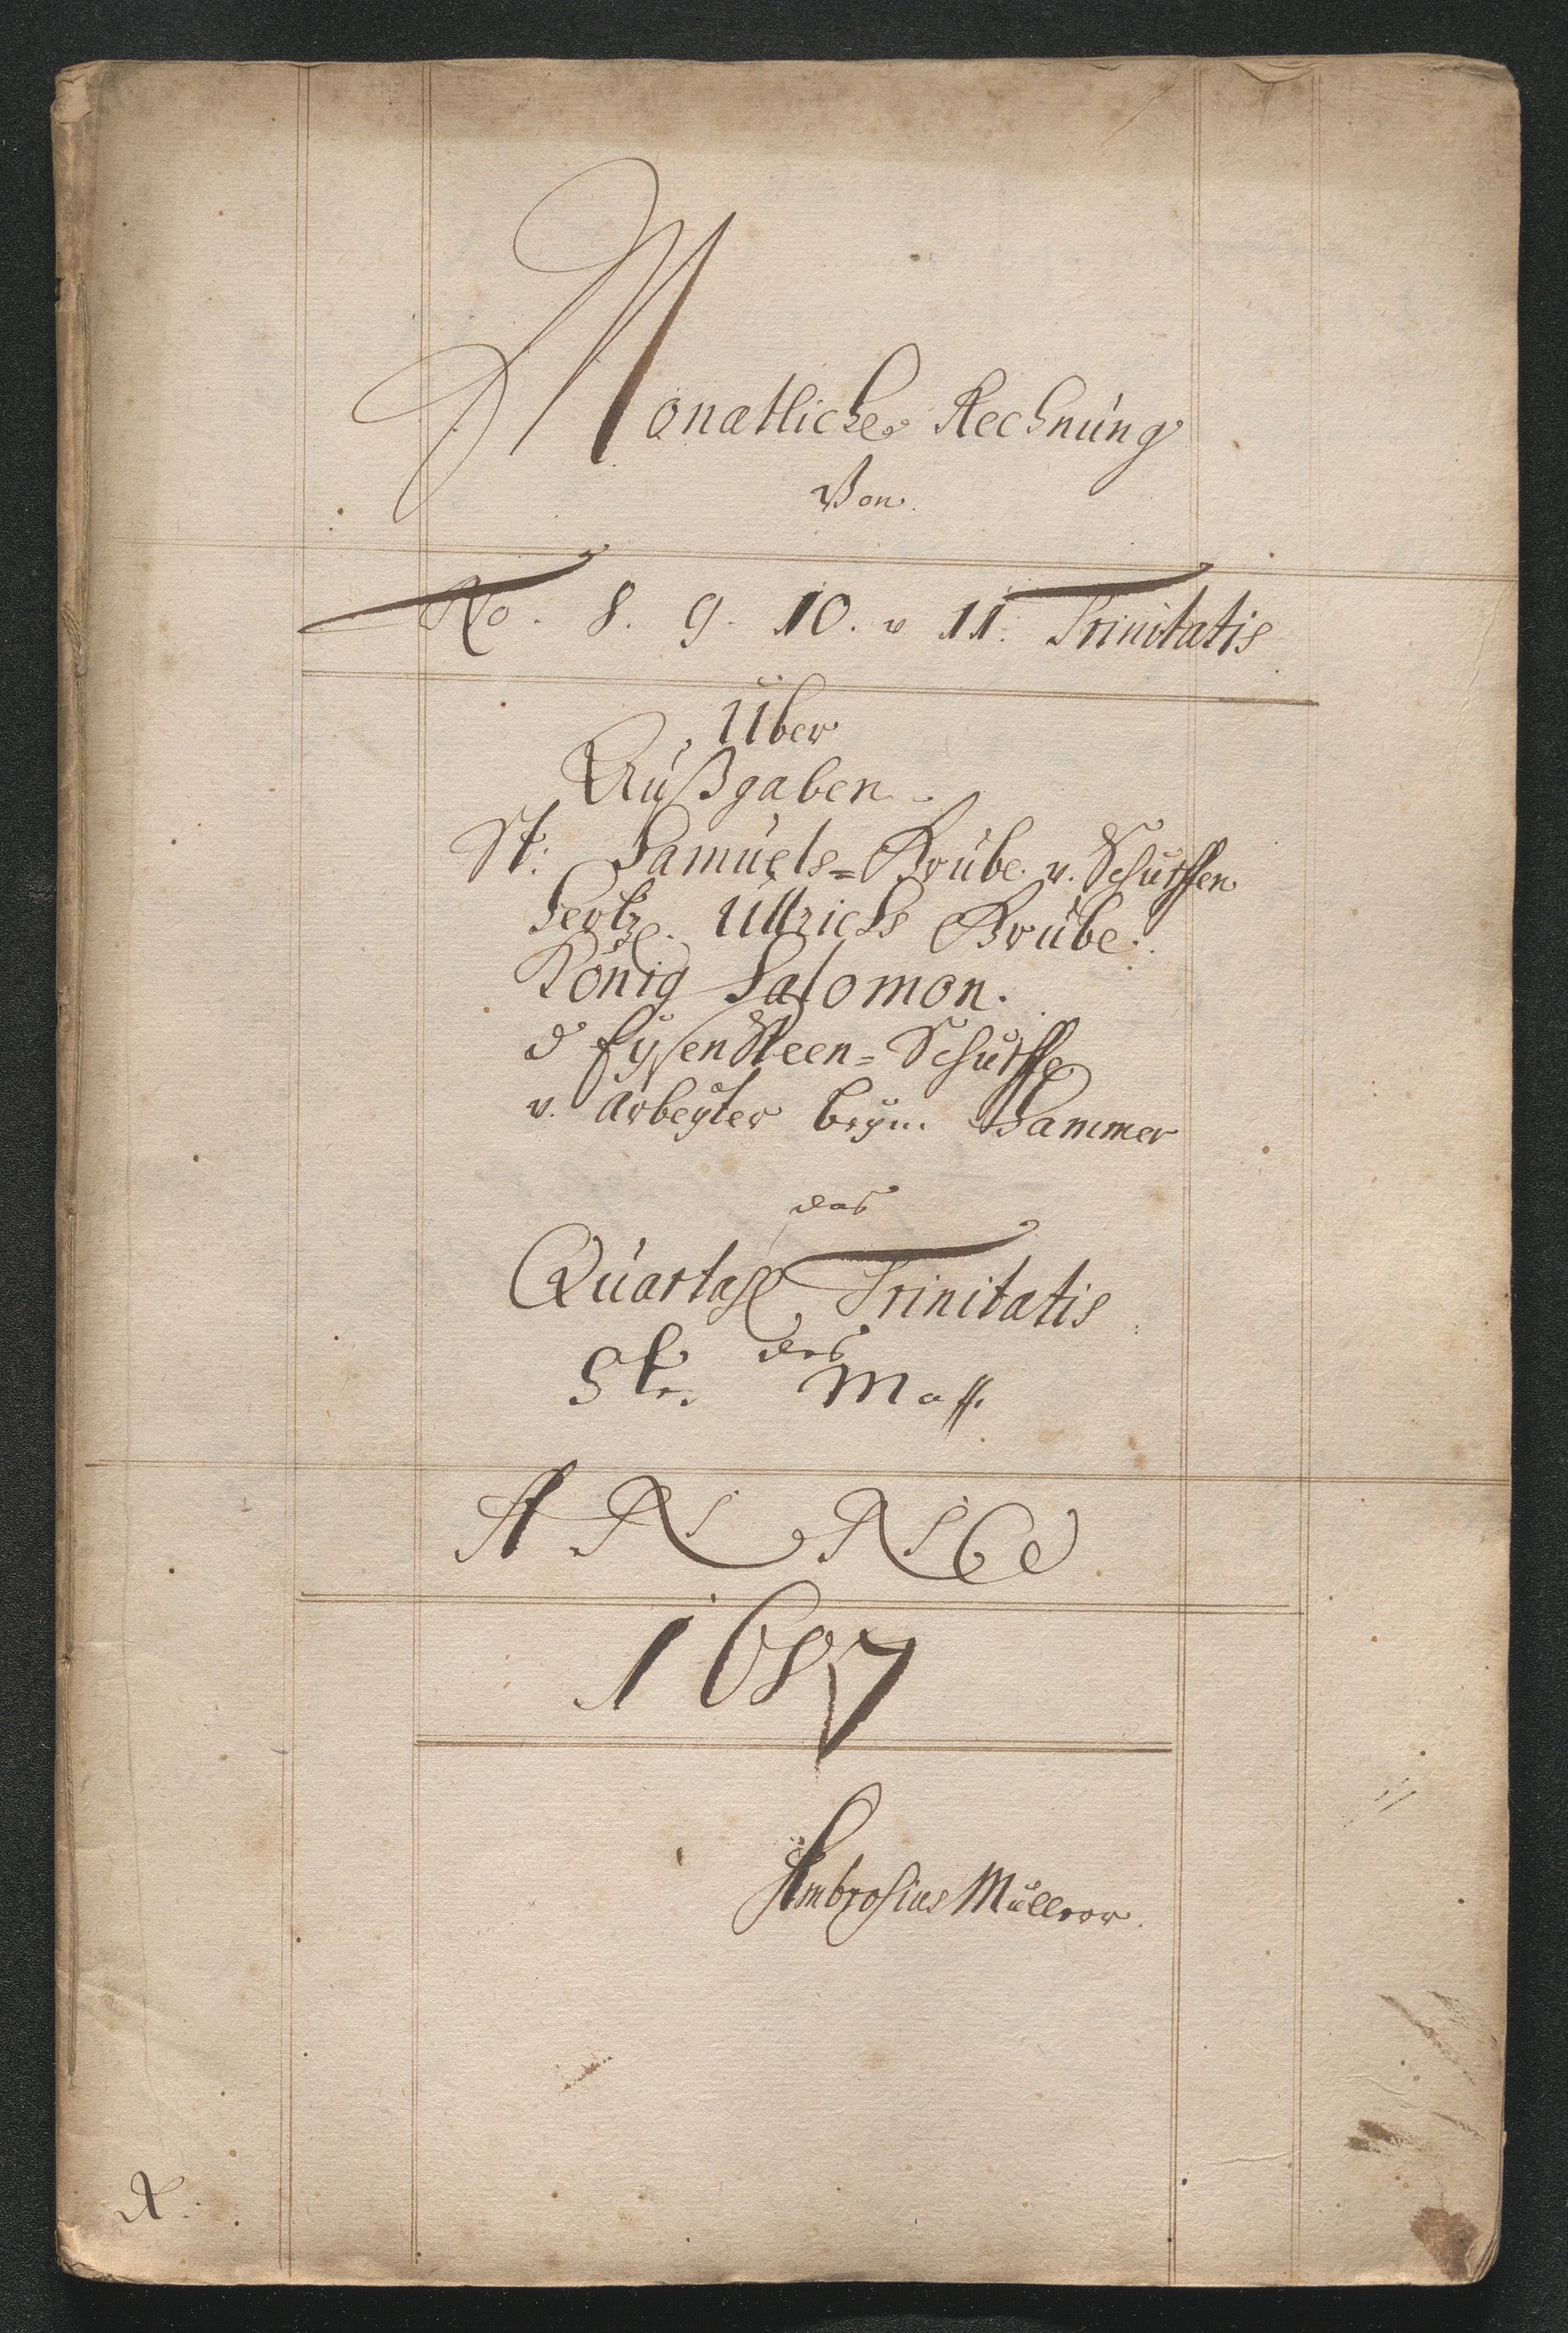 Monatliche Rechnung
Von
No. 8. 9. 10. v 11. Trinitatis
Über
Außgaben
St: Samuels=Grube v. Schürffen
Hertzg. Ullrichs Grube.
König Salomon.
d Eysensteen=Schürffe
v. Arbeyter beym Hammer
das
Quartal Trinitatis
des
1687
Ambrosius Müller
A.